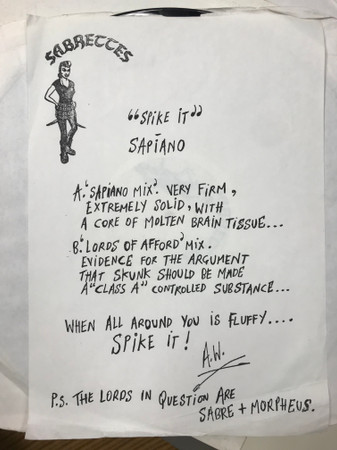 SABRETTES
"SPIKE IT"
SAPIANO
A. "SAPIANO MIX". VERY FIRM,
EXTREMELY SOLID, WITH
A CORE OF MOLTEN BRAIN TISSUE...
B. "LORDS OF AFFORD" MIX.
EVIDENCE FOR THE ARGUMENT
THAT SKUNK SHOULD BE MADE
A "CLASS A" CONTROLLED SUBSTANCE...
WHEN ALL AROUND YOU IS FLUFFY....
SPIKE IT!
A.W.
P.S. THE LORDS IN QUESTION ARE
SABRE + MORPHEUS.